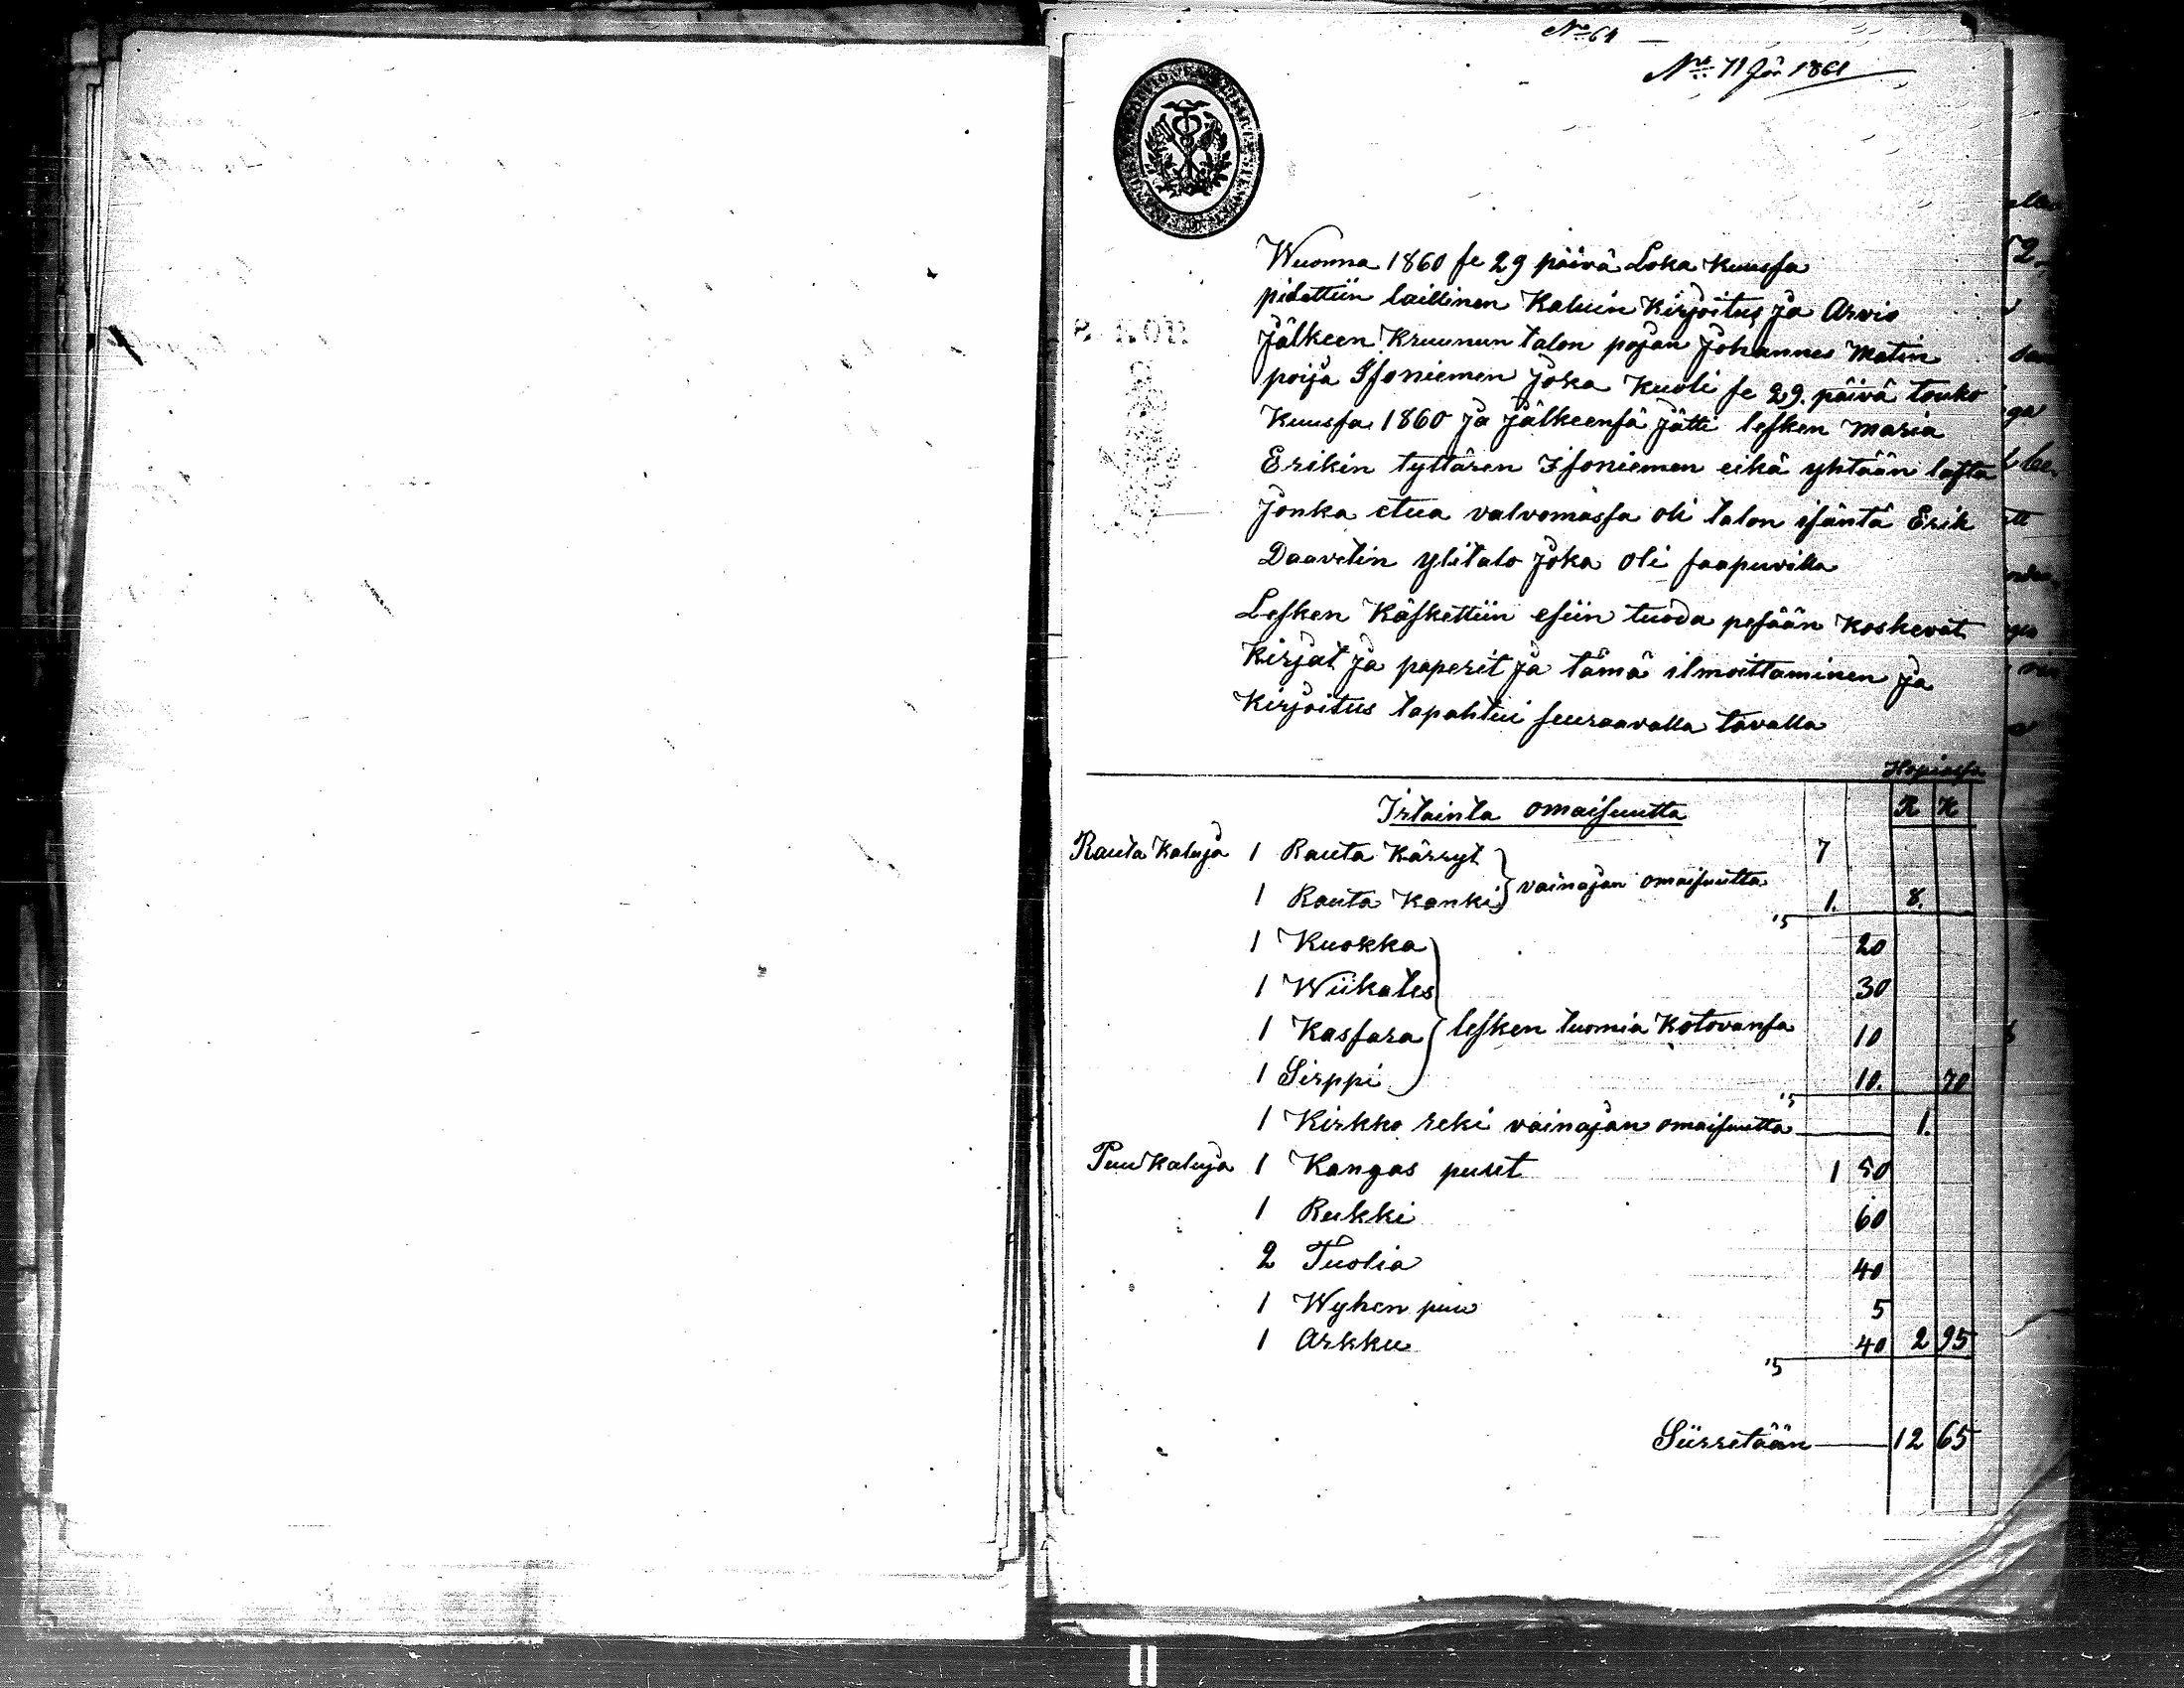 Nro 64
Nro 71 för 1861
Wuonna 1860 se 29 päivä Loka kuussa
pidettiin laillinen Kaluin Kirjoitus ja Arvio
Jälkeen Kruunun talon pojan Johannes Matin
poija Isoniemen Joka kuoli se 29. päivä touko
Kuussa 1860 ja Jälkeensä Jätti lesken Maria
Erikin tyttären Isoniemen eikä yhtään lasta
Jonka etua valvomassa oli talon isäntä Erik
Daavetin ylitalo Joka oli saapuvilla
Lesken Käskettiin esiin tuoda pesään koskevat
Kirjat ja paperit ja tämä ilmoittaminen ja
Kirjoitus tapahtui seuraavalla tavalla
Hopiassa
Irtainta omaisuutta R K
Rauta kaluja 1 Rauta Kärryt 7
1 Rauta Kanki vainajan omaisuutta 1. 8.
1 Kuokka 20
1 Wiikates 30
1 Kassara lesken tuomia Kotovansa 10
1 Sirppi 10. 70
1 Kirkko reki vainajan omaisuutta 1.
Puu kaluja 1 Kangas puut 1 50
1 Rukki 60
2 Tuolia 40
1 Wyhen puu 5
1 Arkku 40 2 95
Siirretään 12 65